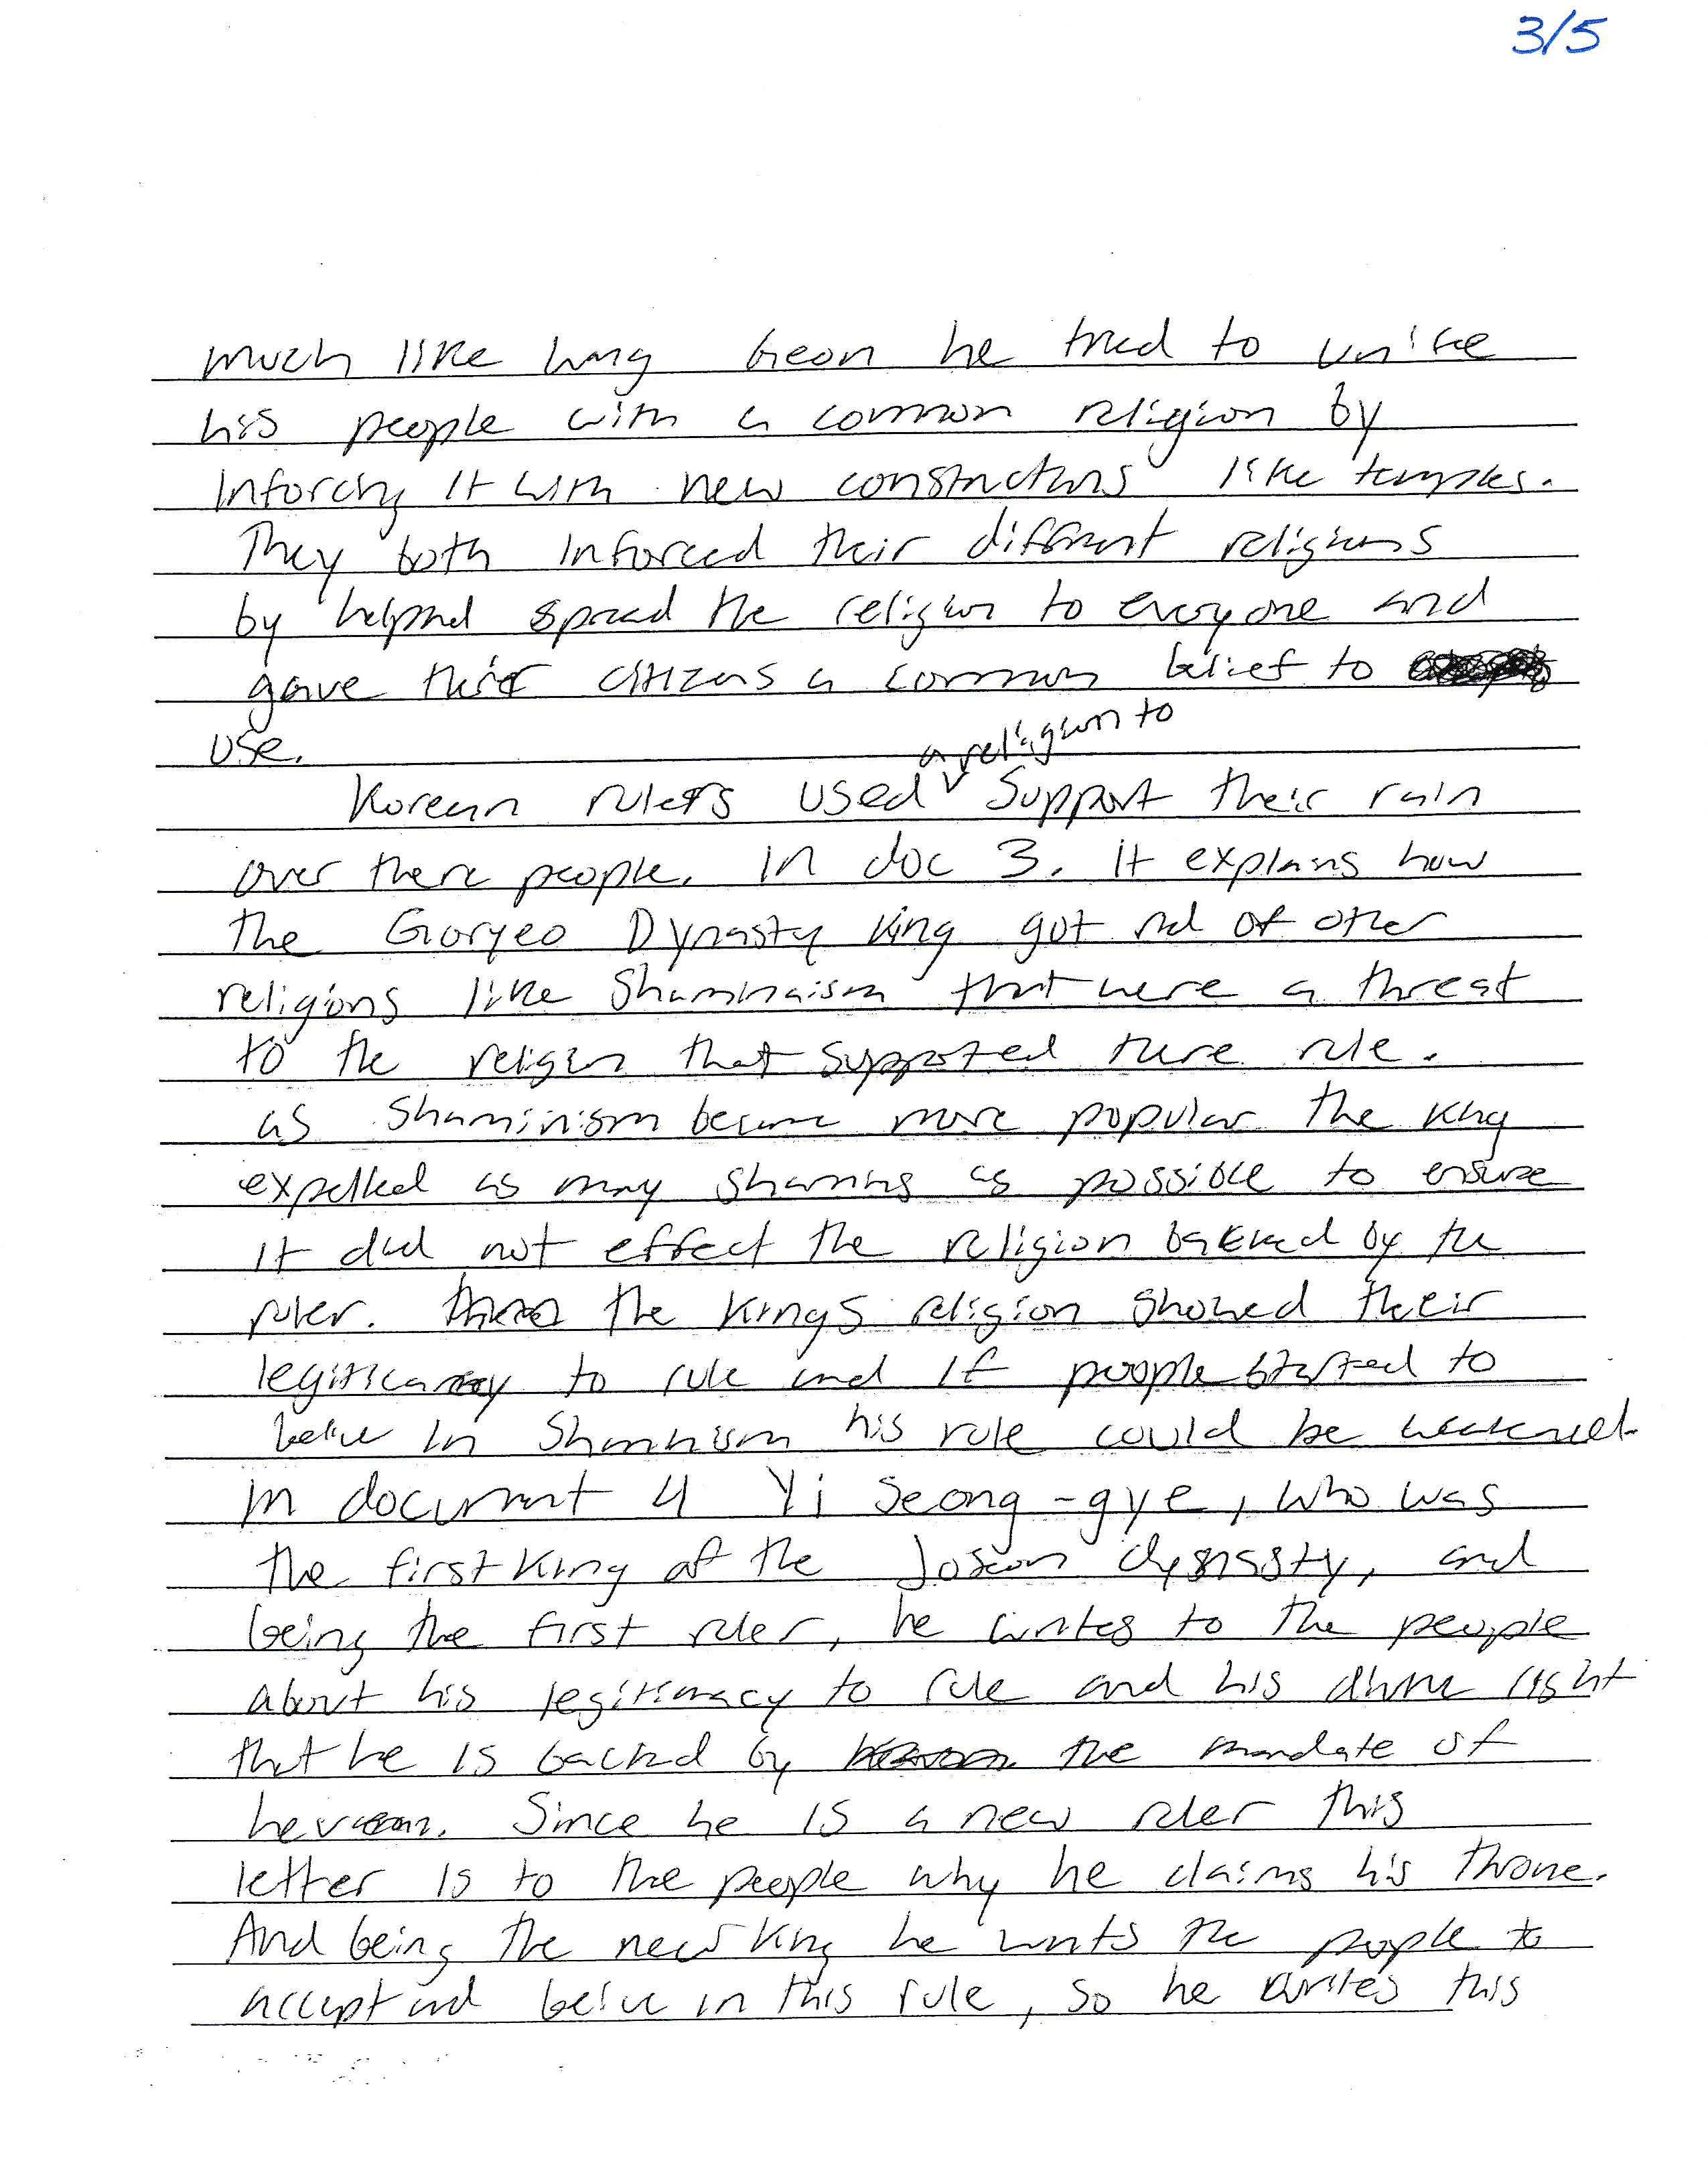 3/5
much like wang Geon he tried to unite
his people with a common religion by
Inforcing It with new constructions like temples.
They both Inforced their different religions
by helped spread the religion to everyone and
gave their citizens a common belief to
use.
a religion to
Korean rulers used support their rain
over there people. In doc 3. It explains how
the Goryeo Dynasty king got rid of other
religions like Shaminaism that were a threat
to the religion that supported there rule.
as Shaminism became more popular the king
expelled as many shamins as possible to ensure
It did not effect the religion backed by the
ruler. the kings religion showed their
to rule and If people started to
belive In Shaminism his role could be weakened.
In document 4 Yi Seong-gye, who was
the first king of the Joseon dynasty, and
being the first ruler, he writes to the people
about his legitimacy to rule and his divine right
that he Is backed by the mandate of
heveean. Since he IS a new ruler this
letter Is to the people why he claims his throne.
And being the new king he wants the people to
accept and belive in this rule, so he writes this